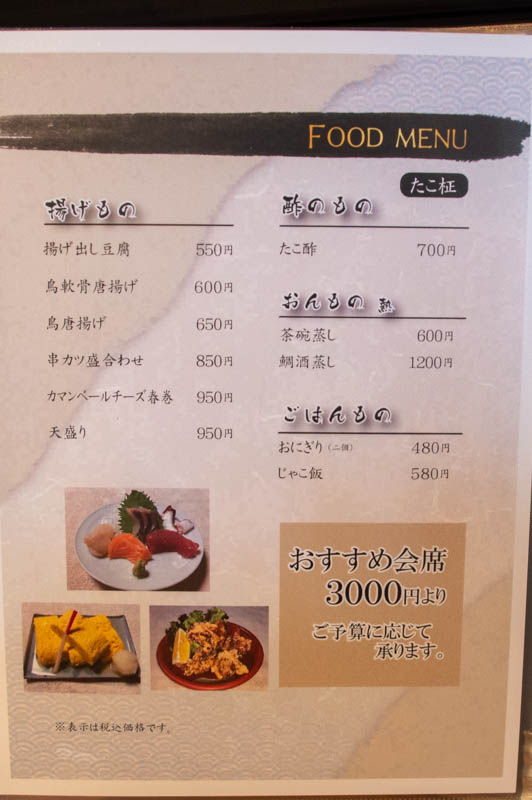 FOOD MENU
たこ柾
揚げもの
揚げ出し豆腐 550円
鳥軟骨唐揚げ 600円
鳥唐揚げ 650円
串カツ盛合わせ 850円
カマンベールチーズ春巻 950円
天盛り 950円
酢のもの
たこ酢 700円
おんもの 熱
茶碗蒸し 600円
鯛酒蒸し 1200円
ごはんもの
おにぎり(二個) 480円
じゃこ飯 580円
おすすめ会席
3000円より
ご予算に応じて
承ります。
※表示は税込価格です。